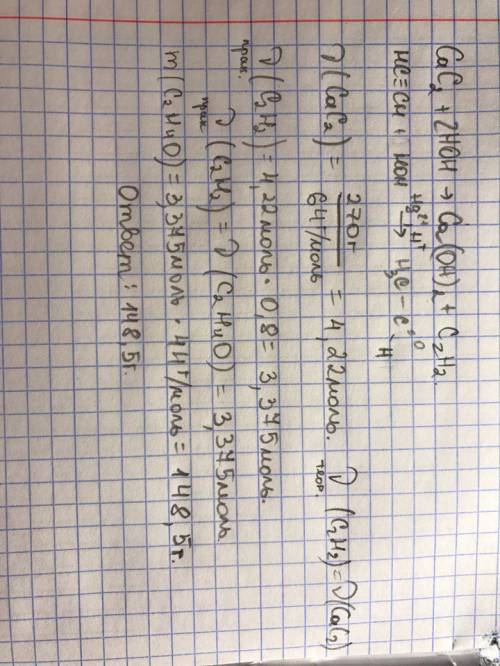 CaC₂ + 2HOH → Ca(OH)₂ + C₂H₂.
HC≡CH + HOH Hg²⁺, H⁺ → H₃C – C =O – H
ν(CaC₂) = 270г / 64г/моль = 4,22моль. ν теор. (C₂H₂) = ν(CaC₂)
ν прак. (C₂H₂) = 4,22моль · 0,8 = 3,375моль.
ν прак. (C₂H₂) = ν(C₂H₄O) = 3,375моль
m(C₂H₄O) = 3,375моль · 44г/моль = 148,5г.
Ответ: 148,5г.